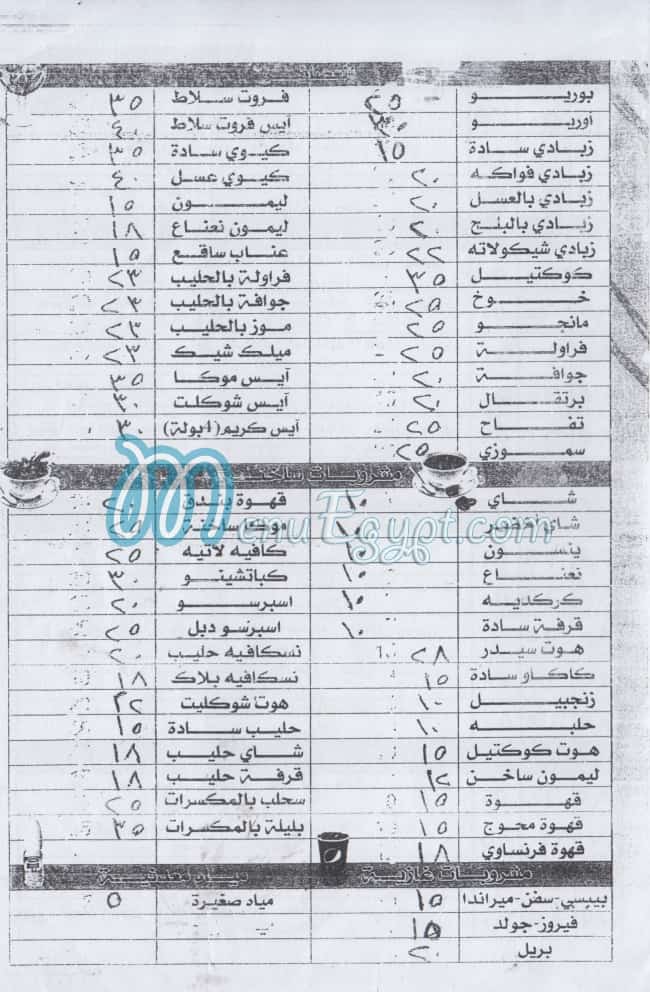 بوريو ٢٥ فروت سلاط ٣٥
اوريو فروت آيس سلاط ٤٠
زبادي سادة ١٥ كيوي سادة ٣٥
زبادي فواكه ٢٠ كيوي عسل ٤٠
زبادي بالعسل ٢٠ ليمون ١٥
زبادي بالبنج ٢٠ ليمون نعناع ١٨
زبادي شيكولاته ٢٢ عناب ساقع ١٥
كوكتيل ٣٥ فراولة بالحليب ٢٣
خوخ ٢٥ جوافة بالحليب ٢٣
مانجو ٢٥ موز بالحليب ٢٣
فراولة ٢٥ ميلك شيك ٢٣
جوافة ٢٠ آيس موكا ٣٥
برتقال ٢٠ آيس شوكلت ٣٠
تفاح ٢٥ آيس كريم (4بولة) ٣٠
سموزي ٢٥
مشروبات ساخنة
MenuEgypt.com
شاي ١٠ قهوة بندق
شاي اخضر ١٠ موكا ساخنة ٢٥
ينسون ١٥ كافيه لاتيه ٢٥
نعناع ١٠ كباتشينو ٣٠
كركديه ١٠ اسبرسو ٢٠
قرفة سادة ١٠ اسبرسو دبل ٢٥
هوت سيدر ٢٨ نسكافيه حليب ٢٠
كاكاو سادة ١٥ نسكافيه بلاك ١٨
زنجبيل ١٠ هوت شوكليت ٢٢
حلبه ١٠ حليب سادة ١٥
هوت كوكتيل ١٥ شاي حليب ١٨
ليمون ساخن ١٢ قرفة حليب ١٨
قهوة ١٥ سحلب بالمكسرات ٢٥
قهوة محوج ١٥ بليلة بالمكسرات ٣٥
قهوة فرنساوي ١٨
مشروبات غازية مياه معدنية
بيبسي-سفن-ميراندا ١٥ مياه صغيرة ٥
فيروز-جولد ١٥
بريل ٢٠